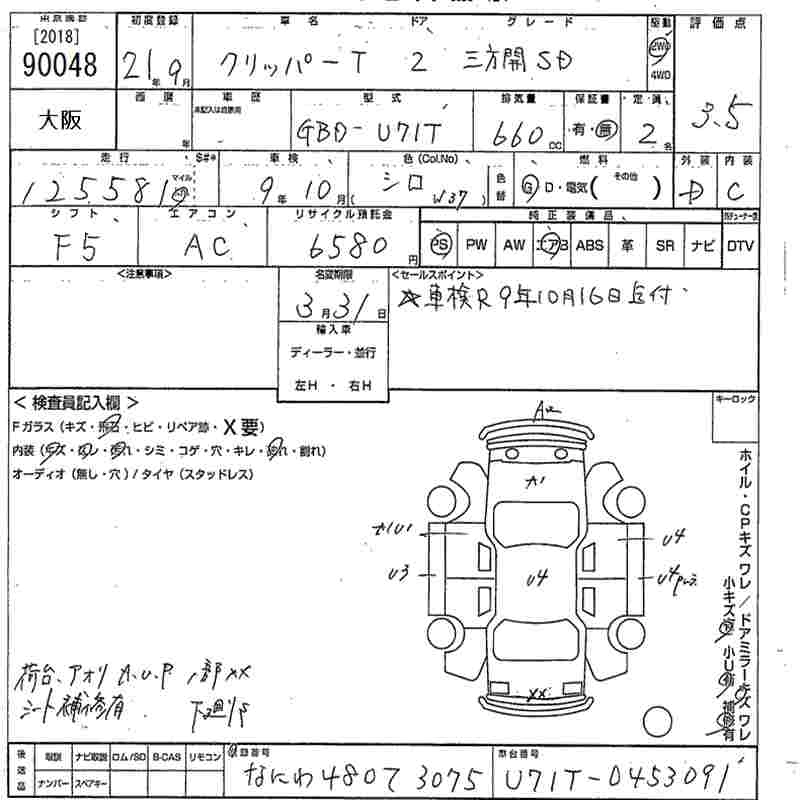 東京開設 初度登録 車名 ドア グレード 駆動 評価点
[2018]
90048 21年 9月 クリッパーT 2 三方開SD 2WD 4WD 3.5
大阪 西暦 年 車歴 型式 排気量 保証書 定員
未記入は自家用 GBD-U71T 660cc 有・無 2名
走行 S#* 車検 色(Col.No) 色替 燃料 外装 内装
125581 マイル km 9年 10月 シロ W37 G D・電気( その他 ) D C
シフト エアコン リサイクル預託金 純正装備品
F5 AC 6580円 PS PW AW エアB ABS 革 SR ナビ DTV
<注意事項> 名変期限 <セールスポイント>
3月31日 ☆車検R9年10月16日
輸入車
ディーラー・並行
左H・右H
キーロック
< 検査員記入欄 >
Fガラス (キズ・飛石・ヒビ・リペア跡・X要)
内装 (キズ・ヨレ・汚れ・シミ・コゲ・穴・キレ・割れ)
オーディオ (無し・穴) / タイヤ (スタッドレス)
A2
A1
U1 U4
U3 U4 U4
XX
ホイル・CPキズ ワレ / ドアミラーキズ ワレ
小キズ 小U 補修有
荷台、アオリ A.U.P XX
シート補修有 下廻りS
後送品 取説 ナビ取説 ロム/SD B-CAS リモコン 登録番号 車台番号
ナンバー スペアキー なにわ 480 て 3075 U71T-0453091